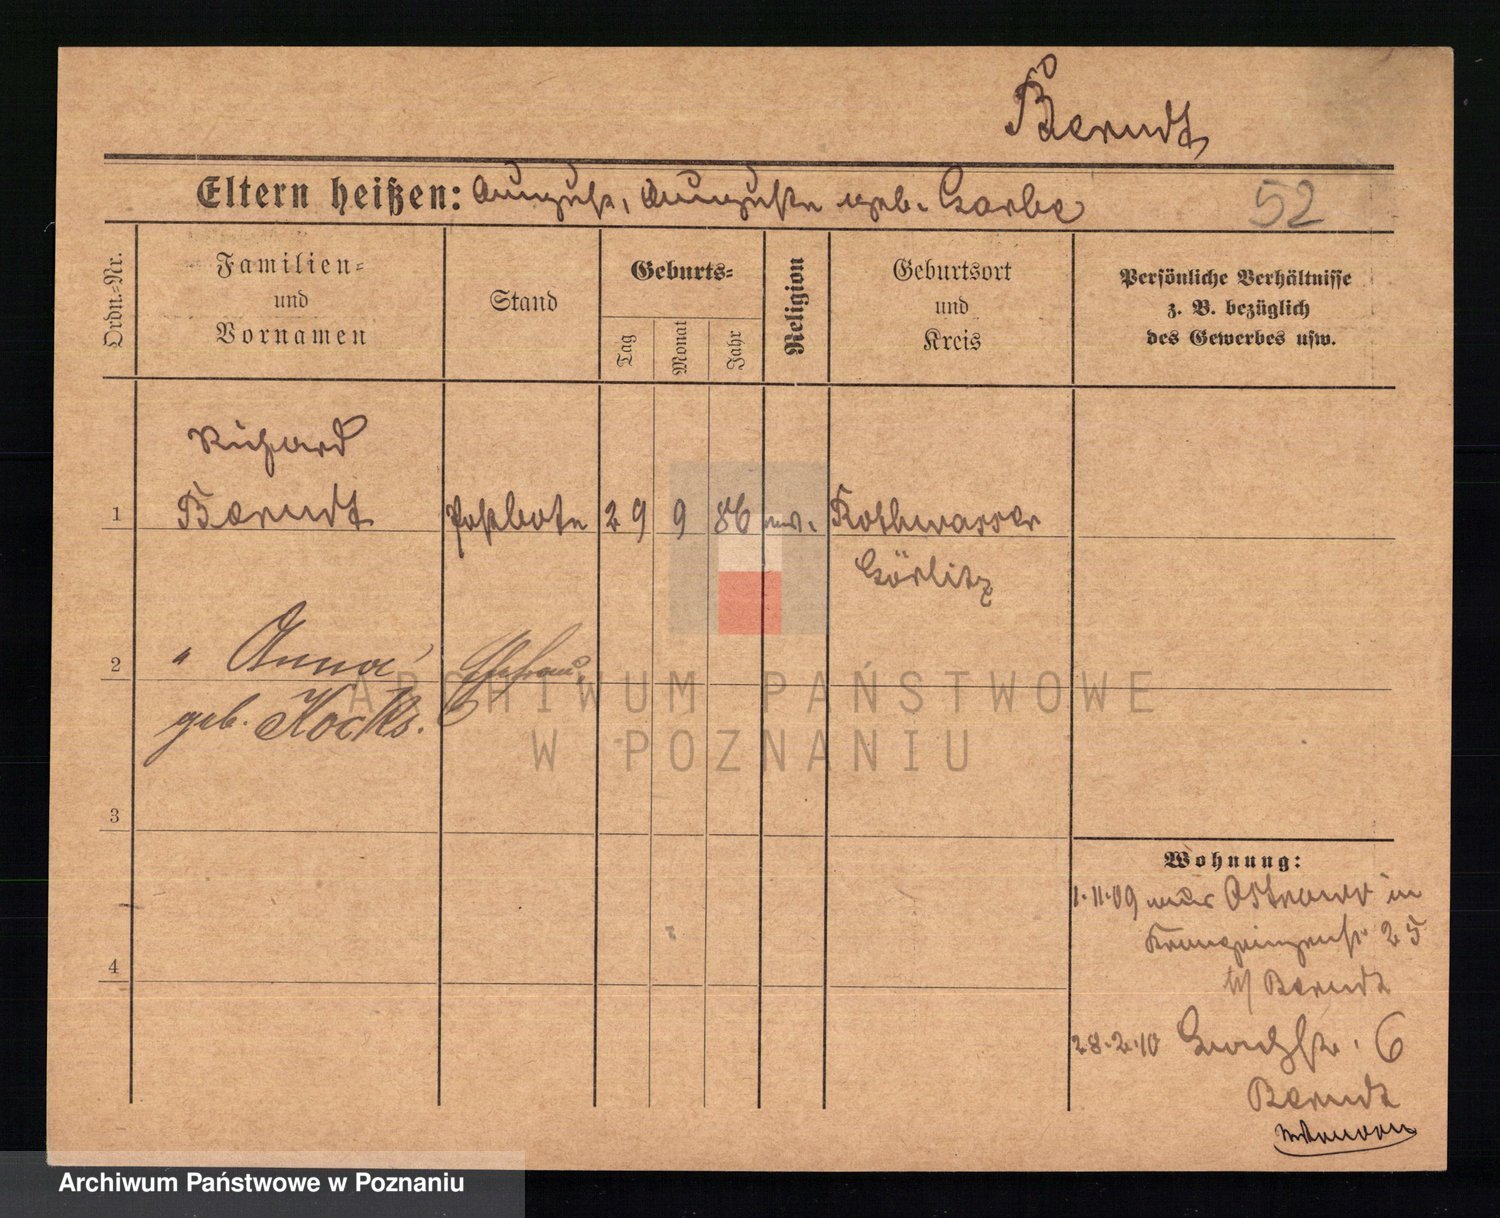 Berndt
Eltern heißen: August, Auguste geb. Garbe
52
Ordn.-Nr.
Familien-
und
Vornamen
Stand
Geburts-
Tag
Monat
Jahr
Religion
Geburtsort
und
Kreis
Persönliche Verhältnisse
z. B. bezüglich
des Gewerbes usw.
Richard
1 Berndt Postbote 29 9 86 ev. Rothwasser
Görlitz
2 " Anna, Ehefrau
geb.
3
4
Wohnung:
1.11.09 aus Ostrowo in
Kronprinzenstr 25
b/ Berndt
28.2.10 6
Berndt
ARCHIWUM PAŃSTWOWE
W POZNANIU
Archiwum Państwowe w Poznaniu